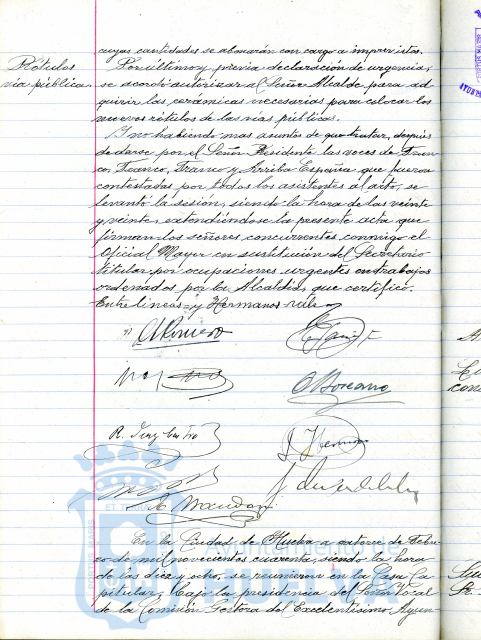 cuyas cantidades se abonarán con cargo a imprevistos.
Rótulos
vías públicas
Por último y previa declaración de urgencia,
se acordó autorizar al Señor Alcalde para ad
quirir las cerámicas necesarias para colocar los
nuevos rótulos de las vías públicas.
Y no habiendo mas asuntos de que tratar, después
de darse por el Señor Presidente las voces de Fran-
co, Franco, Franco y Arriba España que fueron
contestadas por todos los asistentes al acto, se
levantó la sesión, siendo la hora de las veinte
y veinte, extendiéndose la presente acta que
firman los señores concurrentes conmigo el
Oficial Mayor en sustitución del Secretario
titular por ocupaciones urgentes en trabajos
ordenados por la Alcaldía, que certifico.
Entre lineas = y Hermanos = vale
En la Ciudad de Huelva a catorce de Febre
ro de mil novecientos cuarenta, siendo la hora
de las diez y ocho, se reunieron en la Casa Ca
pitular, bajo la presidencia del Señor Vocal
de la Comisión Gestora del Excelentísimo Ayun-
Ayuntamiento de